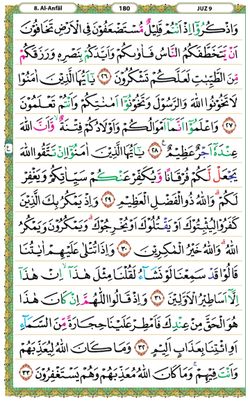 8. Al-Anfāl 180 JUZ 9
وَاذْكُرُوْٓا اِذْ اَنْتُمْ قَلِيْلٌ مُّسْتَضْعَفُوْنَ فِى الْاَرْضِ تَخَافُوْنَ
اَنْ يَّتَخَطَّفَكُمُ النَّاسُ فَاٰوٰىكُمْ وَاَيَّدَكُمْ بِنَصْرِهٖ وَرَزَقَكُمْ
مِّنَ الطَّيِّبٰتِ لَعَلَّكُمْ تَشْكُرُوْنَ ﴿٢٦﴾ يٰٓاَيُّهَا الَّذِيْنَ اٰمَنُوْا
لَا تَخُوْنُوا اللّٰهَ وَالرَّسُوْلَ وَتَخُوْنُوْٓا اَمٰنٰتِكُمْ وَاَنْتُمْ تَعْلَمُوْنَ
﴿٢٧﴾ وَاعْلَمُوْٓا اَنَّمَآ اَمْوَالُكُمْ وَاَوْلَادُكُمْ فِتْنَةٌ ۙ وَّاَنَّ اللّٰهَ
عِنْدَهٗٓ اَجْرٌ عَظِيْمٌ ﴿٢٨﴾ يٰٓاَيُّهَا الَّذِيْنَ اٰمَنُوْٓا اِنْ تَتَّقُوا اللّٰهَ
يَجْعَلْ لَّكُمْ فُرْقَانًا وَّيُكَفِّرْ عَنْكُمْ سَيِّاٰتِكُمْ وَيَغْفِرْ
لَكُمْ ۗ وَاللّٰهُ ذُو الْفَضْلِ الْعَظِيْمِ ﴿٢٩﴾ وَاِذْ يَمْكُرُ بِكَ الَّذِيْنَ
كَفَرُوْا لِيُثْبِتُوْكَ اَوْ يَقْتُلُوْكَ اَوْ يُخْرِجُوْكَ ۗ وَيَمْكُرُوْنَ وَيَمْكُرُ
اللّٰهُ ۗ وَاللّٰهُ خَيْرُ الْمٰكِرِيْنَ ﴿٣٠﴾ وَاِذَا تُتْلٰى عَلَيْهِمْ اٰيٰتُنَا
قَالُوْا قَدْ سَمِعْنَا لَوْ نَشَآءُ لَقُلْنَا مِثْلَ هٰذَآ ۙ اِنْ هٰذَآ
اِلَّآ اَسَاطِيْرُ الْاَوَّلِيْنَ ﴿٣١﴾ وَاِذْ قَالُوا اللّٰهُمَّ اِنْ كَانَ هٰذَا
هُوَ الْحَقَّ مِنْ عِنْدِكَ فَاَمْطِرْ عَلَيْنَا حِجَارَةً مِّنَ السَّمَآءِ
اَوِ ائْتِنَا بِعَذَابٍ اَلِيْمٍ ﴿٣٢﴾ وَمَا كَانَ اللّٰهُ لِيُعَذِّبَهُمْ
وَاَنْتَ فِيْهِمْ ۗ وَمَا كَانَ اللّٰهُ مُعَذِّبَهُمْ وَهُمْ يَسْتَغْفِرُوْنَ ﴿٣٣﴾